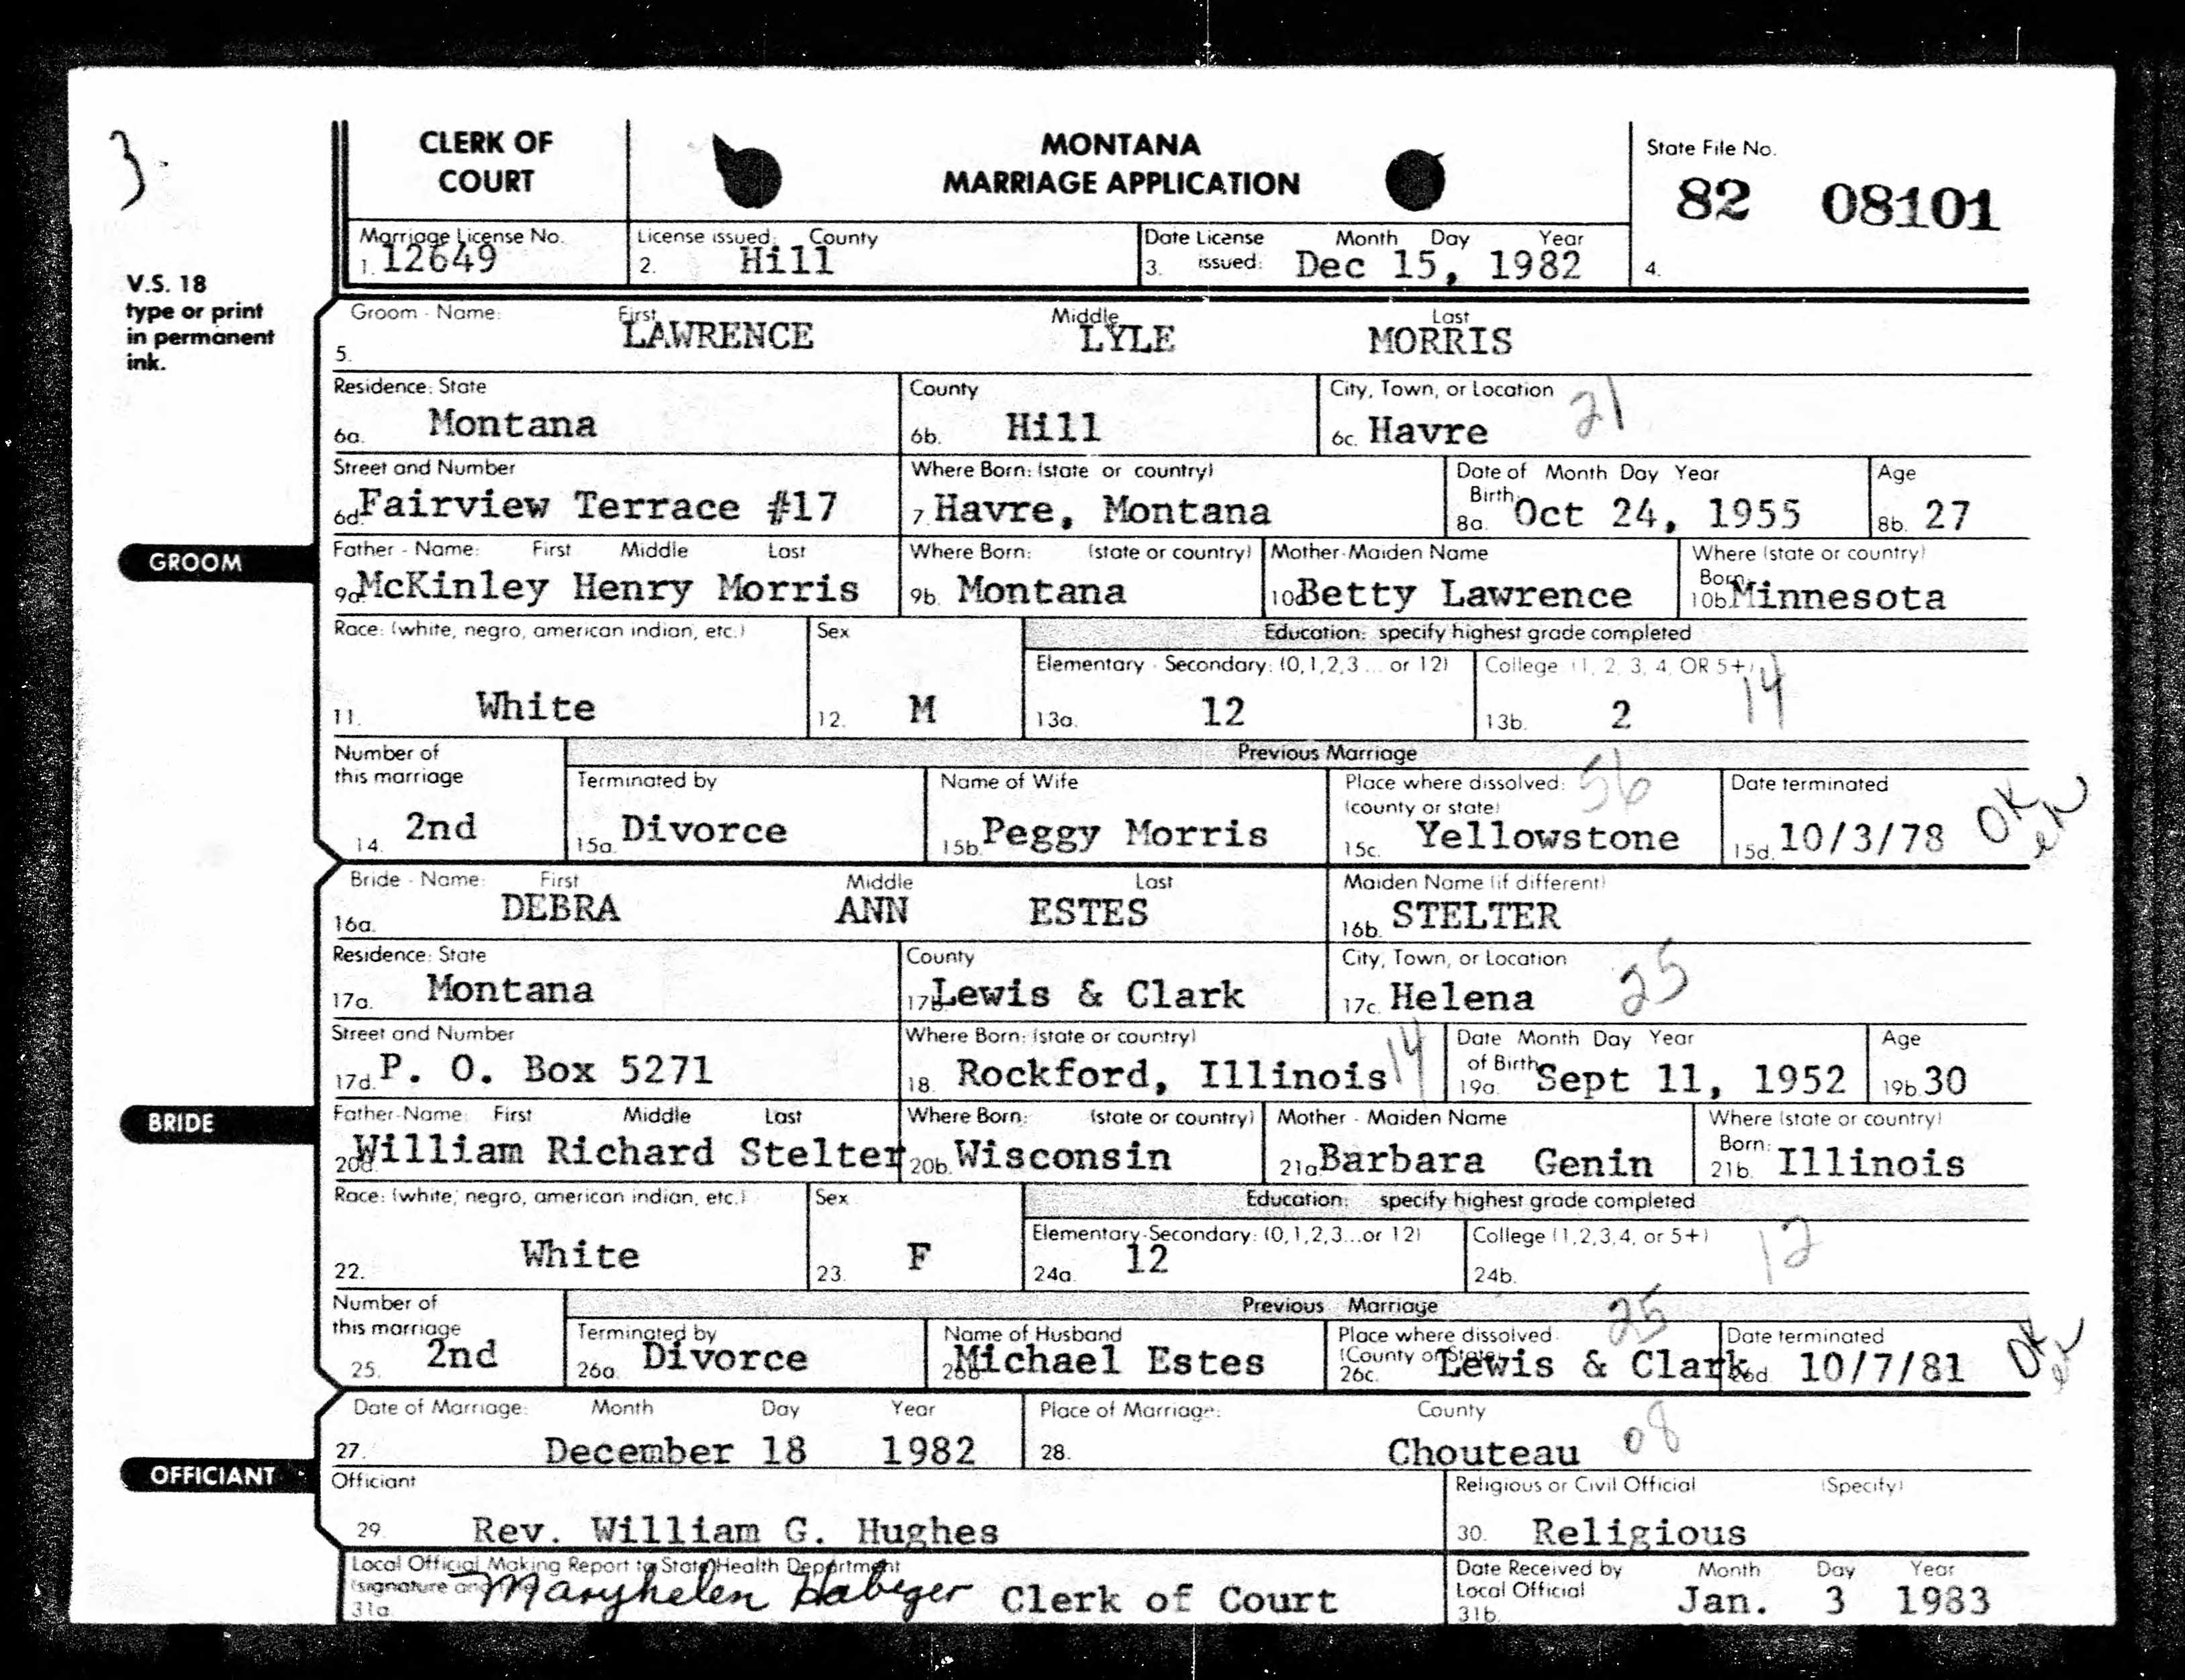 3.
CLERK OF COURT
MONTANA
MARRIAGE APPLICATION
State File No.
82 08101
4.
Marriage License No.
1. 12649
License issued: County
2. Hill
Date License issued: Month Day Year
3. Dec 15, 1982
V.S. 18
type or print
in permanent
ink.
Groom - Name: First Middle Last
5. LAWRENCE LYLE MORRIS
Residence: State County City, Town, or Location 21
6a. Montana 6b. Hill 6c. Havre
Street and Number Where Born: (state or country) Date of Birth: Month Day Year Age
6d. Fairview Terrace #17 7. Havre, Montana 8a. Oct 24, 1955 8b. 27
GROOM
Father - Name: First Middle Last Where Born: (state or country) Mother-Maiden Name Where Born: (state or country)
9a. McKinley Henry Morris 9b. Montana 10a. Betty Lawrence 10b. Minnesota
Race: (white, negro, american indian, etc.) Sex Education: specify highest grade completed
Elementary - Secondary: (0,1,2,3 ... or 12) College (1, 2, 3, 4, OR 5+) 14
11. White 12. M 13a. 12 13b. 2
Number of this marriage Previous Marriage
Terminated by Name of Wife Place where dissolved: (county or state) 56 Date terminated
14. 2nd 15a. Divorce 15b. Peggy Morris 15c. Yellowstone 15d. 10/3/78 OK
Bride - Name: First Middle Last Maiden Name (if different)
16a. DEBRA ANN ESTES 16b. STELTER
Residence: State County City, Town, or Location 25
17a. Montana 17b. Lewis & Clark 17c. Helena
Street and Number Where Born: (state or country) Date of Birth Month Day Year Age
17d. P. O. Box 5271 18. Rockford, Illinois 14 19a. Sept 11, 1952 19b. 30
BRIDE
Father-Name: First Middle Last Where Born: (state or country) Mother - Maiden Name Where Born: (state or country)
20a. William Richard Stelter 20b. Wisconsin 21a. Barbara Genin 21b. Illinois
Race: (white, negro, american indian, etc.) Sex Education: specify highest grade completed
Elementary-Secondary: (0,1,2,3...or 12) College (1,2,3,4, or 5+) 12
22. White 23. F 24a. 12 24b.
Number of this marriage Previous Marriage 25
Terminated by Name of Husband Place where dissolved (County or State) Date terminated
25. 2nd 26a. Divorce 26b. Michael Estes 26c. Lewis & Clark 26d. 10/7/81 OK
Date of Marriage: Month Day Year Place of Marriage: County
27. December 18 1982 28. Chouteau 08
OFFICIANT
Officiant Religious or Civil Official (Specify)
29. Rev. William G. Hughes 30. Religious
Local Official Making Report to State Health Department Date Received by Local Official Month Day Year
(signature and
31a. Maryhelen Habeger Clerk of Court 31b. Jan. 3 1983